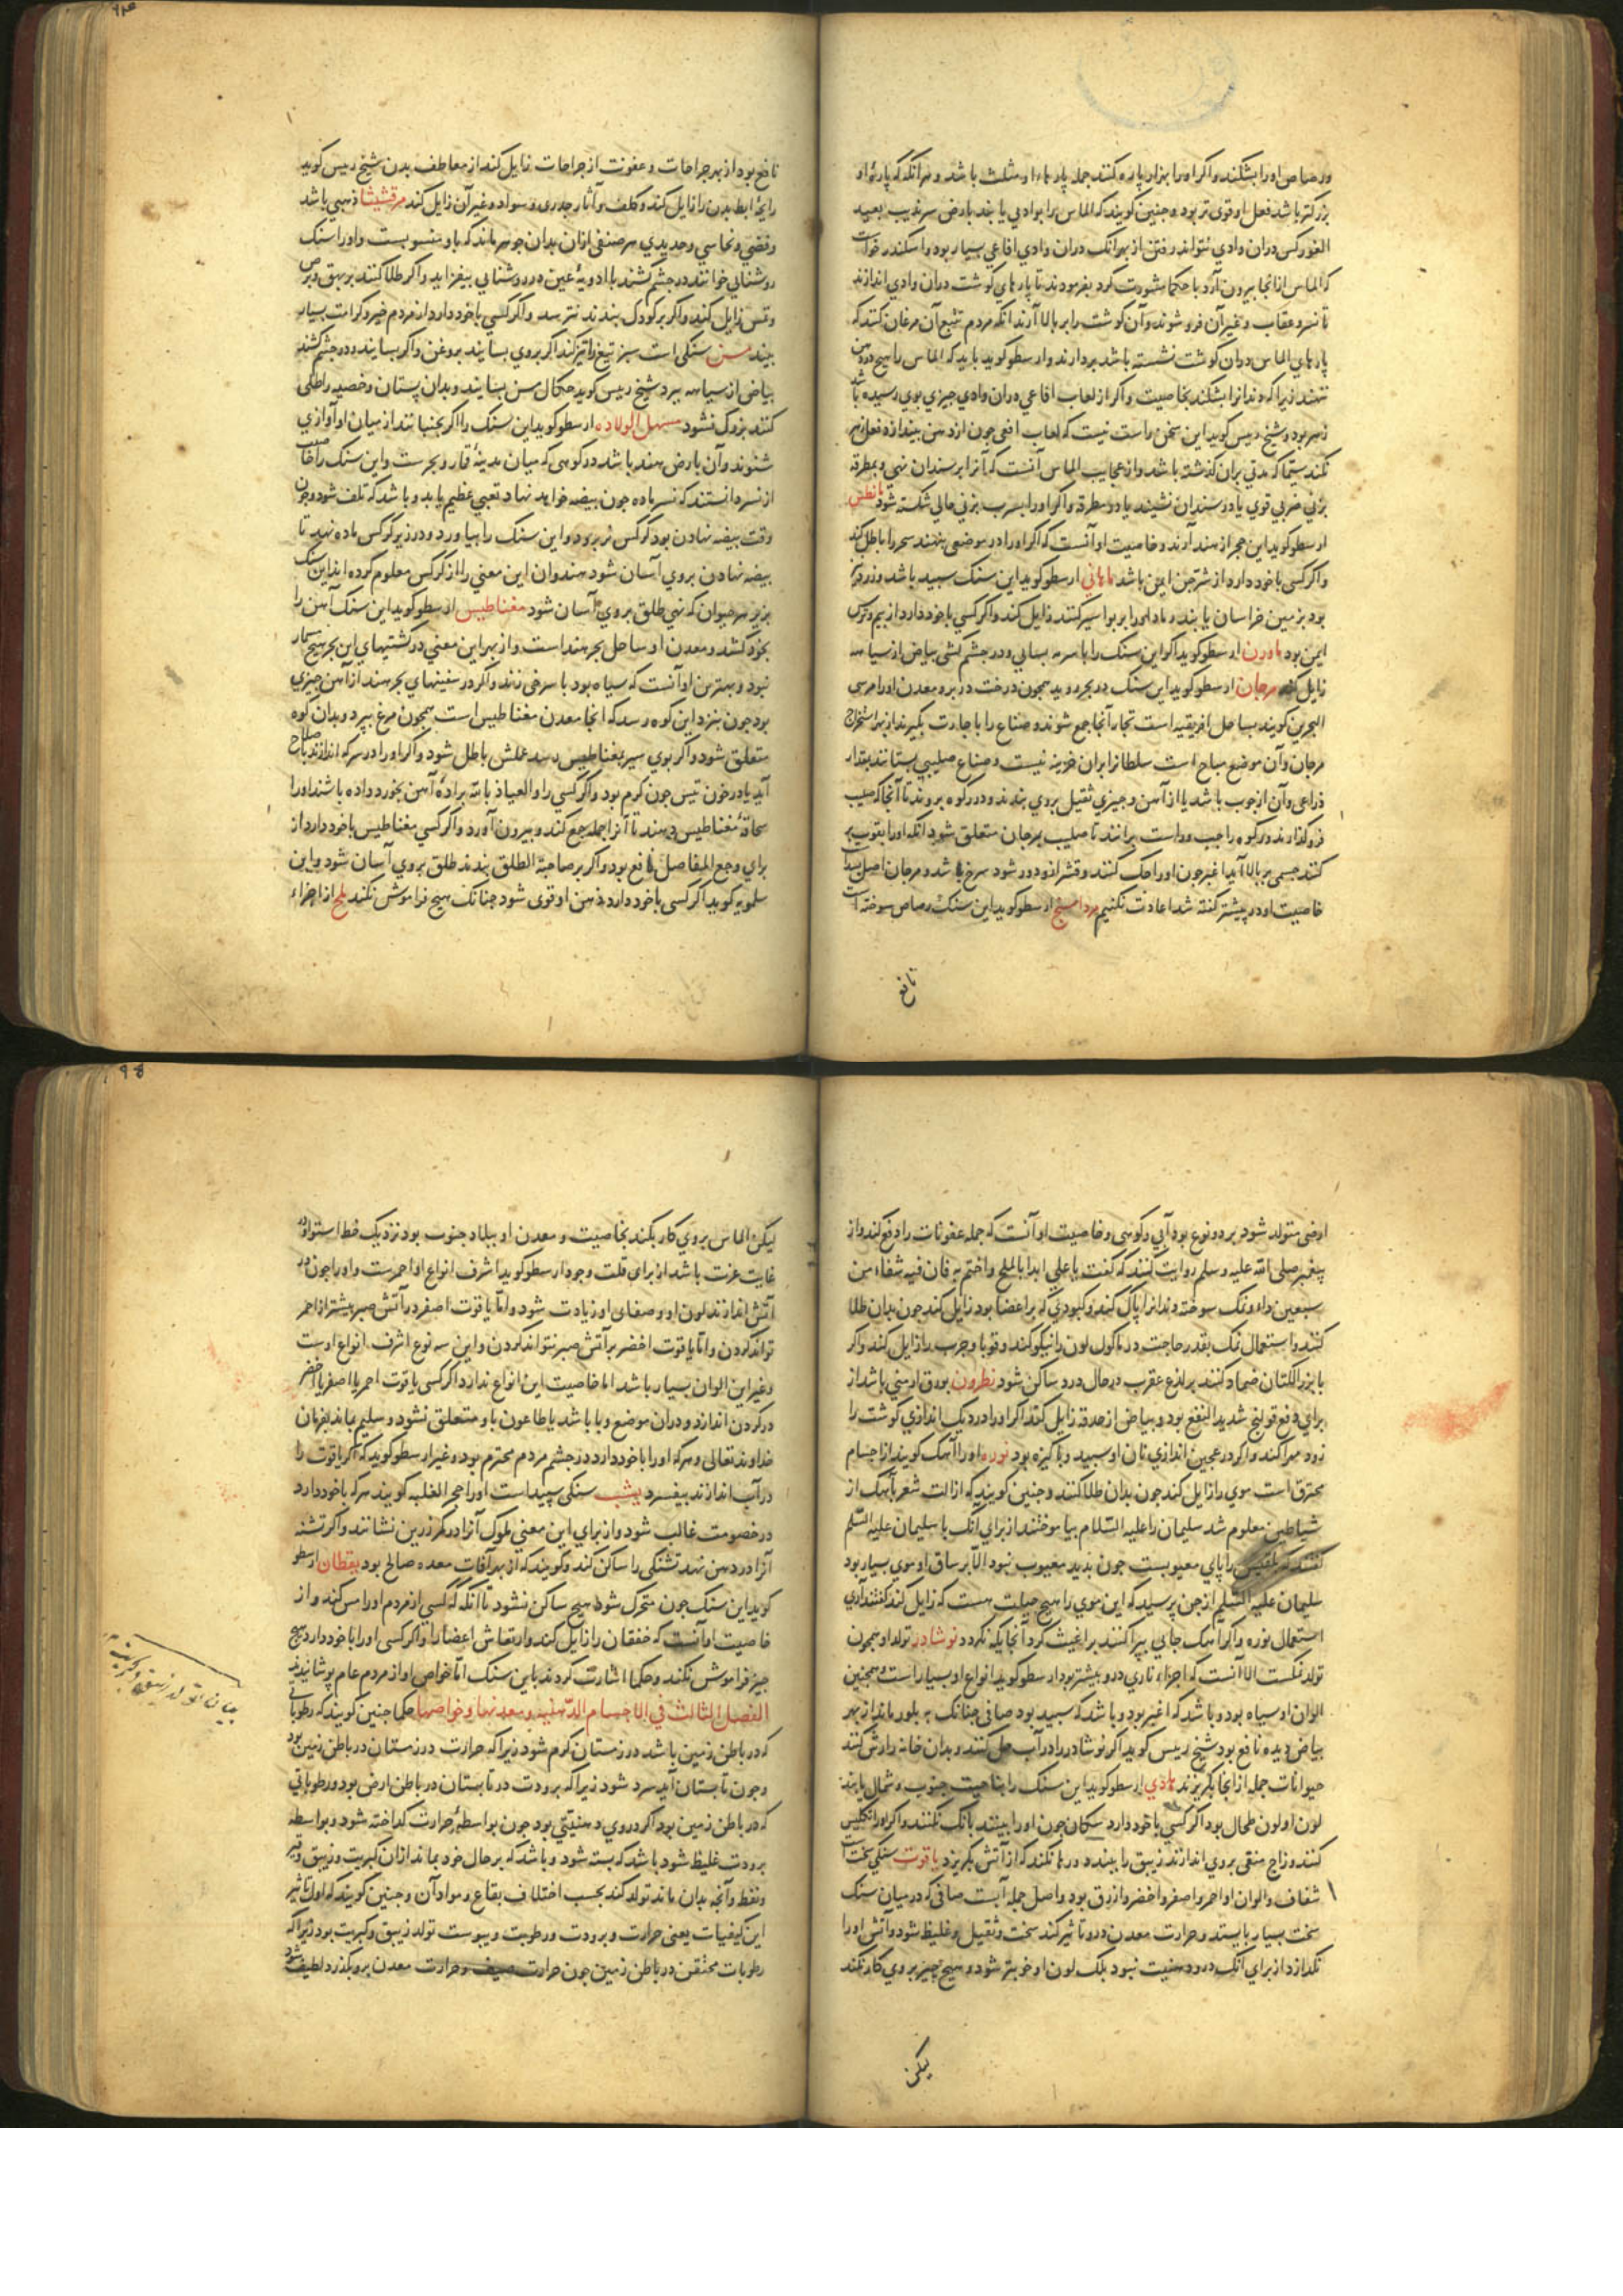 ورصاص او را بشکند واکر او را بهزار پاره کنند جمله پارها او مثلث باشد و هر آنکه که پارۀ او
بزرکتر باشد فعل او قوی تر بود و جنین کویند که الماس را بوادی یابند بارض سرندیب بعید
الغور کس دران وادی نتواند رفتن از بهر آنک دران وادی افاعی بسیار بود و اسکندر خواست
که الماس از انجا بیرون آرد با حکما مشورت کرد بفرمودند تا پارهای کوشت دران وادی اندازند
تا نسر و عقاب و غیر آن فرو شوند و آن کوشت را بر بالا آرند آنکه مردم تتبع آن مرغان کنند که
پارهای الماس دران کوشت نشسته باشد بردارند و ارسطو کوید باید که الماس را هیج در دهن
ننهند زیرا که دندانرا بشکند بخاصیت و اکر از لعاب افاعی دران وادی جیزی بوی رسیده باشد
زهر بود و شیخ رییس کوید این سخن راست نیست که لعاب افعی جون از دهن بیندازد فعل زهر
نکند سیما که مدتی بران کذشته باشد و از عجایب الماس آنست که آنرا بر سندان نهی و بمطرقه
بزنی ضربی قوی یا در سندان نشیند یا در مطرقه واکر او را بسرب بزنی حالی شکسته شود مانطس
ارسطو کوید این حجر از هند آرند و خاصیت او آنست که اکر او را در موضعی بنهند سحر را باطل کند
واکر کسی با خود دارد از شر جن ایمن باشد ماهانی ارسطو کوید این سنک سپید باشد و زرد نیز
بود بزمین خراسان یابند رماد او را بر بواسیر کنند زایل کند واکر کسی با خود دارد از بیم و ترس
ایمن بود ماورن ارسطو کوید اکر این سنک را با سرمه بسایی و در جشم کشی بیاض از سیاهه
زایل کند مرجان ارسطو کوید این سنک در بحر روید همجون درخت در بر و معدن او را مرسی
البحرین کویند بساحل افریقیه است تجار آنجا جمع شوند و صناع را با جارت بکیرند از بهر استخراج
مرجان و آن موضع مباح است سلطانرا بران خزینه نیست و صناع صلیبی بستانند بقدار
ذراعی و آن از جوب باشد یا از آهن و جیزی ثقیل بروی بندند و در کوه بروند تا آنجا که صلیب
فرو کذارند در کوه را جب و راست برانند تا صلیب بمرجان متعلق شود آنکه او را بقوت بر
کنند جسمی بر بالا آید اغبر جون او را حک کنند و قشر از و دور شود سرخ باشد و مرجان اصل بسد است
خاصیت او در پیشتر کفته شد اعادت نکنیم مرداسنج ارسطو کوید این سنک رصاص سوخته است
نافع
نافع بود از بهر جراحات و عفونت از جراحات زایل کند از معاطف بدن شیخ رییس کوید
رایحۀ ابط بدن را زایل کند و کلف و آثار جدری و سواد و غیر آن زایل کند مرقشیشا ذهبی باشد
و فضی و نحاسی و حدیدی هر صنفی ازان بدان جوهر ماند که باو منسوبست و او را سنک
روشنایی خوانند در جشم کشند با ادویۀ عین در روشنایی بیفزاید واکر طلا کنند بر بهق و برص
و نمش زایل کند واکر بر کودک بندند نترسد واکر کسی با خود دارد از مردم خیر و کرامت بسیار
بیند مسن سنکی است سبز تیغ را تیز کند اکر بروی بسایند بروغن واکر بسایند و در جشم کشند
بیاض از سیاهه ببرد شیخ رییس کوید حکال مسن بسایند و بدان پستان و خصیه را طلی
کنند بزرک نشود مسهل الولاده ارسطو کوید این سنک را اکر بجنبانند از میان او آوازی
شنوند و آن بارض هند باشد در کوهی که میان مدینۀ قار و بحرست و این سنک را خاصیت
از نسر دانستند که نسر ماده جون بیضه خواهد نهاد تعبی عظیم یابد و باشد که تلف شود و جون
وقت بیضه نهادن بود کرکس نر برود و این سنک را بیاورد و در زیر کرکس ماده نهد تا
بیضه نهادن بروی آسان شود هندوان این معنی را از کرکس معلوم کرده اند این سنک
بزیر هر حیوان که نهی طلق بروی آسان شود مغناطیس ارسطو کوید این سنک آهن را
بخود کشد و معدن او ساحل بحر هند است و از بهر این معنی در کشتیهای این بحر هیج مسمار
نبود و بهترین او آنست که سیاه بود با سرخی زند واکر در سفینهای بحر هند از آهن جیزی
بود جون بنزد این کوه رسد که انجا معدن مغناطیس است همجون مرغ بپرد و بدان کوه
متعلق شود واکر بوی سیر بمغناطیس رسد عملش باطل شود واکر او را در سرکه اندازند باصلاح
آید یا در خون تیس جون کرم بود واکر کسی را و العیاذ بالله برادۀ آهن بخورد داده باشند او را
سحالۀ مغناطیس دهند تا آنرا جمله جمع کند و بیرون آورد واکر کسی مغناطیس با خود دارد از
برای وجع المفاصل نافع بود واکر بر صاحبة الطلق بندند طلق بروی آسان شود و این
سلمویه کوید اکر کسی با خود دارد ذهن او قوی شود جنانک هیج فراموش نکند ملح از اجزاء
ارضی متولد شود بر دو نوع بود آبی و کوهی و خاصیت او آنست که جمله عفونات را دفع کند و از
پیغمبر صلی الله علیه و سلم روایت کنند که کفت یا علی ابدا بالملح و اختم به فان فیه شفاء من
سبعین داء و نمک سوخته دندانرا پاک کند و کبودی که بر اعضا بود زایل کند جون بدان طلا
کنند و استعمال نمک بقدر حاجت در ماکول لون را نیکو کند و قوبا و جرب را زایل کند واکر
با بزر الکتان ضماد کنند بر لذع عقرب در حال درد ساکن شود نطرون بورق ارمنی باشد از
برای دفع قولنج شدید النفع بود و بیاض از حدقه زایل کند اکر او را در دیک اندازی کوشت را
زود مهرا کند واکر در عجین اندازی نان او سپید و پاکیزه بود نوره او را آهک کویند از اجسام
محترق است موی را زایل کند جون بدان طلا کنند و جنین کویند که ازالت شعر بآهک از
شیاطین معلوم شد سلیمان را علیه السلام بیاموختند از برای آنک با سلیمان علیه السلم
کفتند که بلقیس را پای معیوبست جون بدید معیوب نبود الا بر ساق او موی بسیار بود
سلیمان علیه السلم از جن پرسید که این موی را هیج حیلت هست که زایل کند کفتند آری
استعمال نوره واکر آهک جایی بپراکنند براغیث کرد آنجایکه نکردد نوشادر تولد او همجون
تولد نمکست الا آنست که اجزاء ناری درو بیشتر بود ارسطو کوید انواع او بسیار است و همجنین
الوان او سیاه بود و باشد که اغبر بود و باشد که سپید بود صافی جنانک به بلور ماند از بهر
بیاض دیده نافع بود شیخ رییس کوید اکر نوشادر را در آب حل کنند و بدان خانه را رش کنند
حیوانات جمله از انجا بکریزند هادی ارسطو کوید این سنک را بناحیت جنوب و شمال یابند
لون او لون طحال بود اکر کسی با خود دارد سکان جون او را بینند بانک نکنند واکر او را تکلیس
کنند و زاج منقی بروی اندازند زیبق را ببندد و رها نکند که از آتش بکریزد یاقوت سنکی سخت است
شفاف و الوان او احمر و اصفر و اخضر و ازرق بود و اصل جمله آبست صافی که در میان سنک
سخت بسیار بایستد و حرارت معدن درو تاثیر کند سخت و ثقیل و غلیظ شود و آتش او را
نکدازد از برای آنک درو دهنیت نبود بلک لون او خوبتر شود و هیج جیز بروی کار نکند
لیکن
لیکن الماس بروی کار بکند بخاصیت و معدن او ببلاد جنوب بود نزدیک خط استوا و در
غایت عزت باشد از برای قلت وجود ارسطو کوید اشرف انواع او احمرست و او را جون در
آتش اندازند لون او و صفای او زیادت شود و اما یاقوت اصفر در آتش صبر بیشتر از احمر
تواند کردن و اما یاقوت اخضر بر آتش صبر نتواند کردن و این سه نوع اشرف انواع اوست
و غیر این الوان بسیار باشد اما خاصیت این انواع ندارد اکر کسی یاقوت احمر یا اصفر یا اخضر
در کردن اندازد و دران موضع وبا باشد یا طاعون باو متعلق نشود و سلیم ماند بفرمان
خداوند تعالی و هر که او را با خود دارد در جشم مردم محترم بود و غیر ارسطو کوید که اکر یاقوت را
در آب اندازند بیفسرد یشب سنکی سپید است او را حجر الغلبه کویند هر که با خود دارد
در خصومت غالب شود و از برای این معنی ملوک آنرا در کمر زرین نشانند واکر تشنه
آنرا در دهن نهد تشنکی را ساکن کند و کویند که از بهر آفات معده صالح بود یقظان ارسطو
کوید این سنک جون متحرک شود هیج ساکن نشود تا آنکه که کسی از مردم او را مس کند و از
خاصیت او آنست که خفقان را زایل کند و ارتعاش اعضا را واکر کسی او را با خود دارد هیج
جیز فراموش نکند و حکما اشارت کردند باین سنک اما خواص او از مردم عام پوشانیدند
الفصل الثالث فی الاجسام الدهنیه و معدنها و خواصها حکما جنین کویند که رطوباتی
که در باطن زمین باشد در زمستان کرم شود زیرا که حرارت در زمستان در باطن زمین بود
و جون تابستان آید سرد شود زیرا که برودت در تابستان در باطن ارض بود و رطوباتی
که در باطن زمین بود اکر در وی دهنیتی بود جون بواسطۀ حرارت کداخته شود و بواسطه
برودت غلیظ شود باشد که بسته شود و باشد که بر حال خود بماند ازان کبریت و زیبق و قیر
و نفط و آنچه بدان ماند تولد کند بحسب اختلاف بقاع و مواد آن و جنین کویند که اول تاثیر
این کیفیات یعنی حرارت و برودت و رطوبت و یبوست تولد زیبق و کبریت بود زیرا که
رطوبات محتقن در باطن زمین جون حرارت صیف و حرارت معدن برو بکذرد لطیف شود
بیان تولد زیبق و کبریت